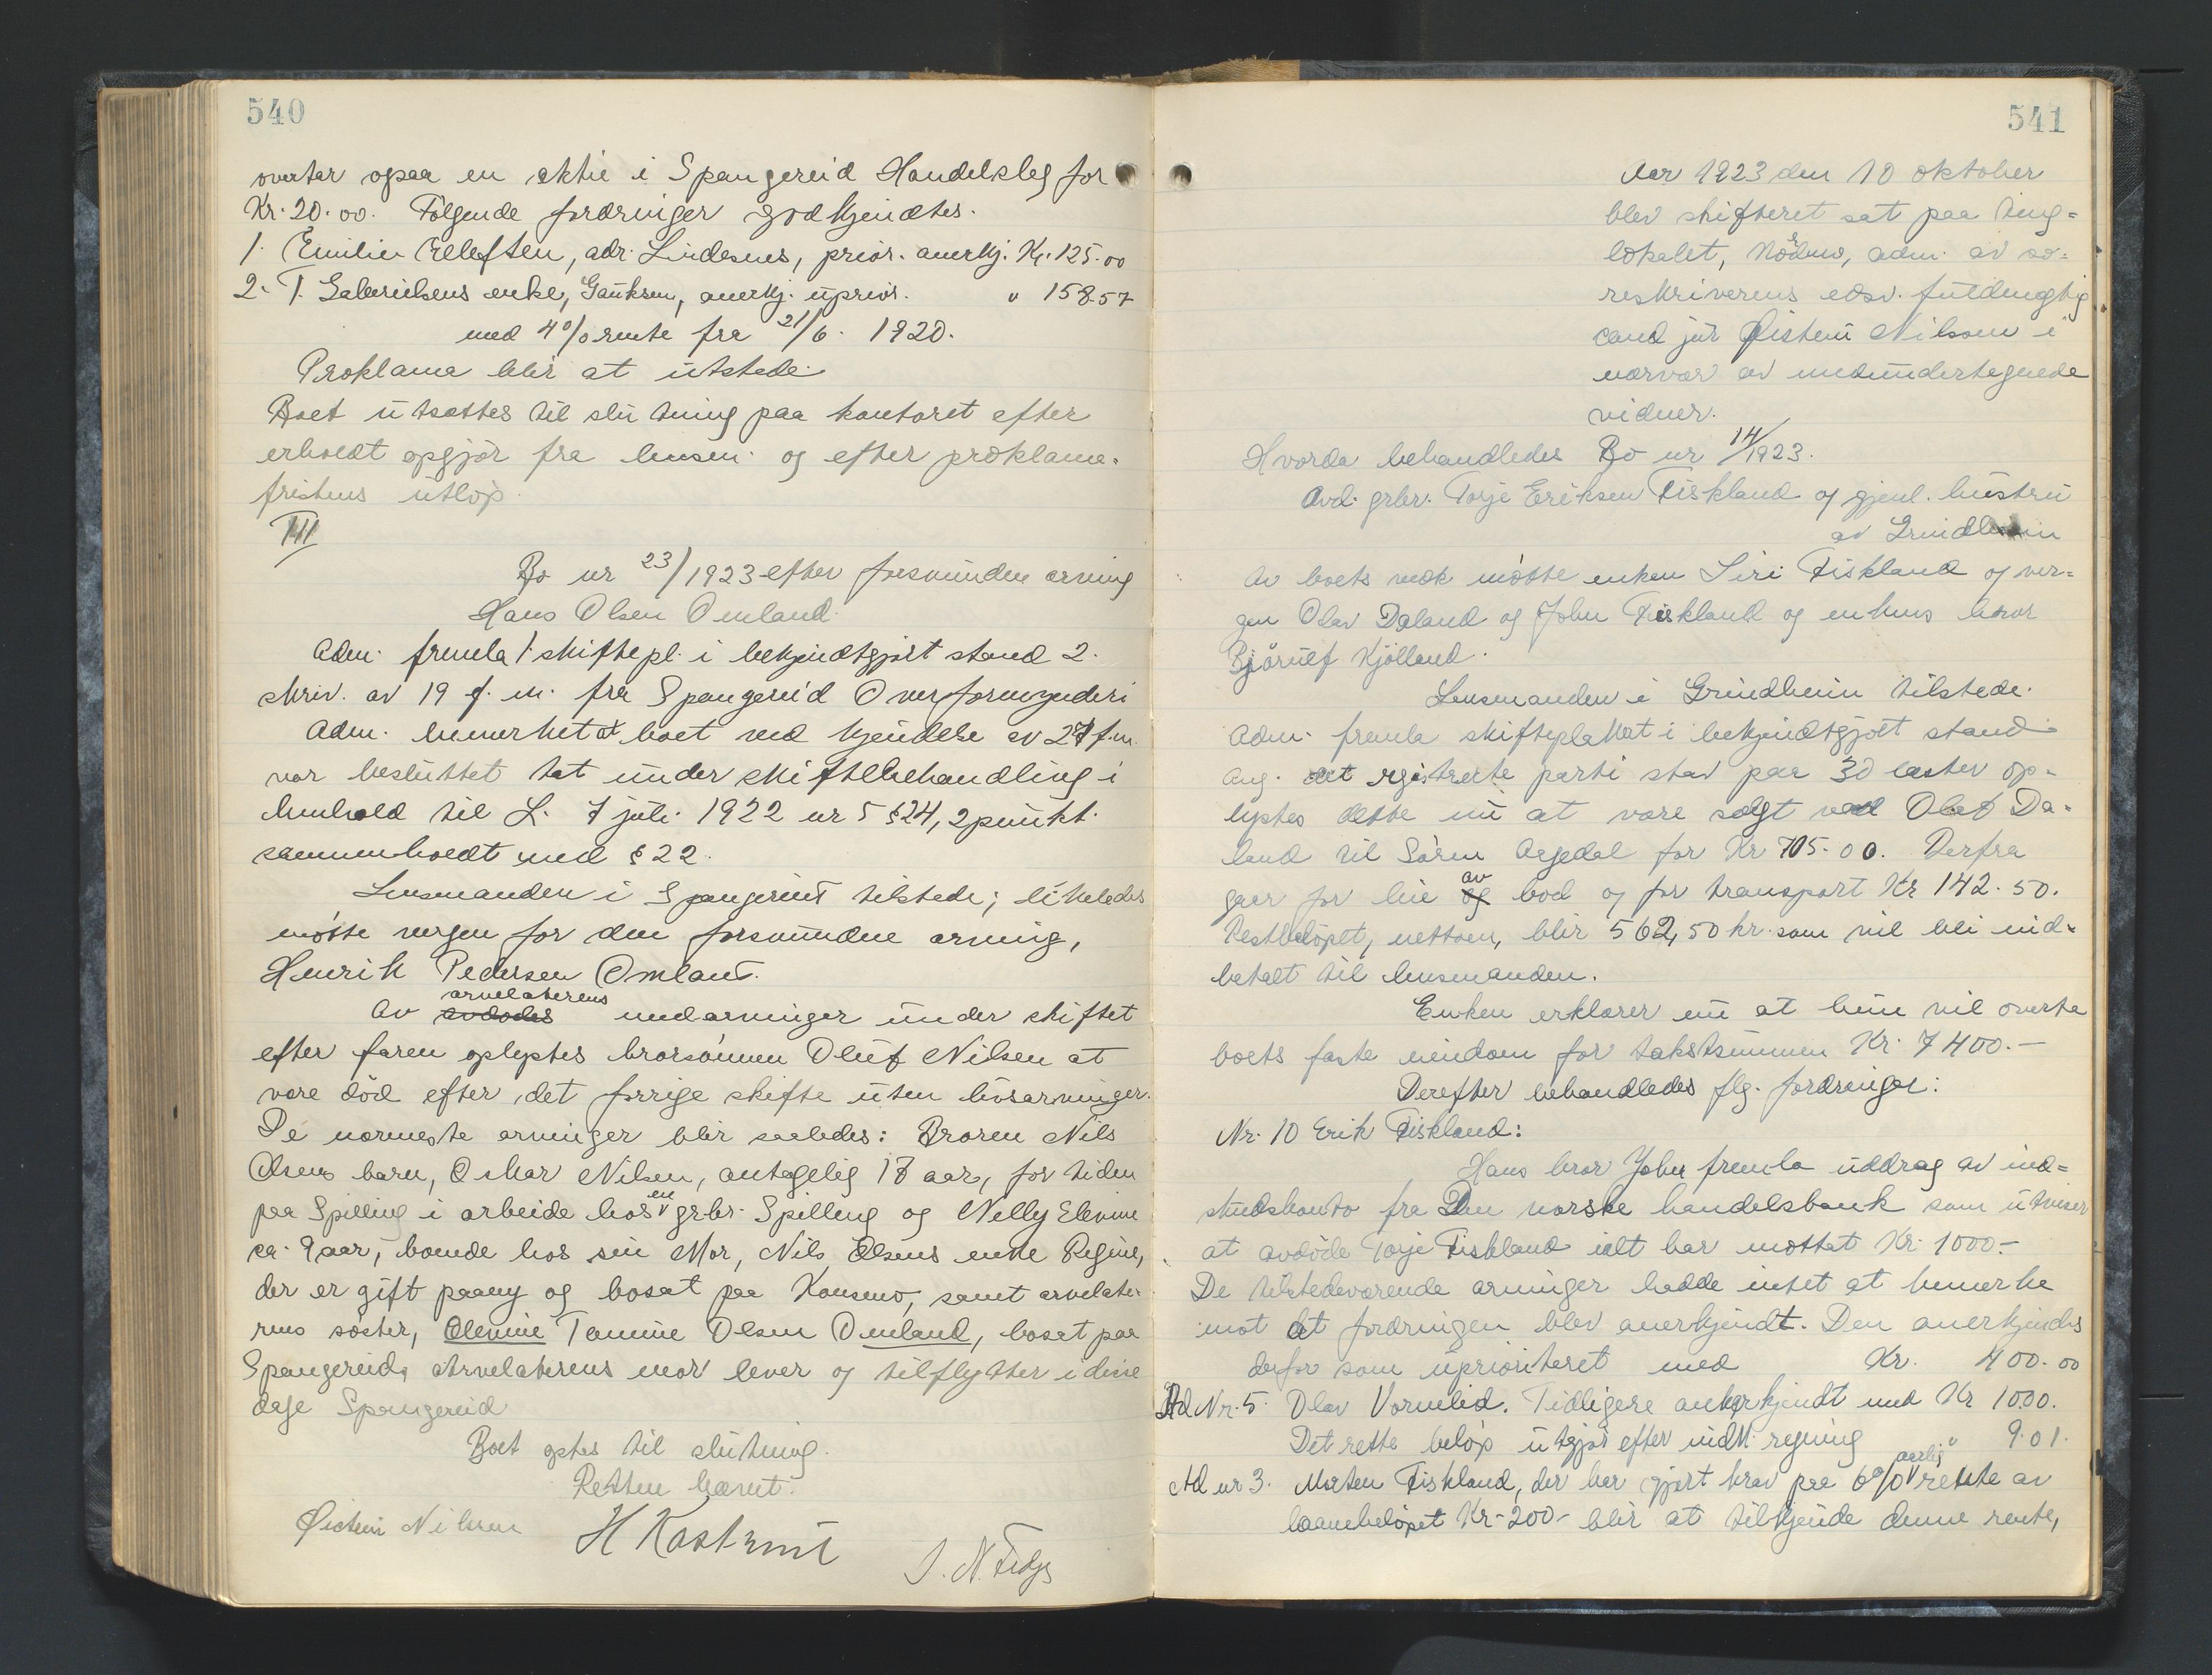 540
overtar ogsaa en aktie i Spangereid Handelslag for
Kr. 20.00. Følgende fordringer godkjendtes.
1. Emilie Ellefsen, adr. Lindesnes, prior. anerkj. Kr. 125.00
2. T. Gabrielsens enke, anerkj. uprior. " 158.57
med 4% rente fra 21/6. 1920.
Proklama blir at utstede.
Boet utsættes til slutning paa kontoret efter
erholdt opgjør fra lensm. og efter proklama-
fristens utløp.
III
Bo nr 23/1923 efter forsvunden arving
Hans Olsen Omland.
Adm. fremla 1. skiftepl. i bekjendtgjort stand 2.
skriv. av 19 f. m. fra Spangereid Overformynderi
Adm. bemerket at boet ved kjendelse av 27 f.m.
var besluttet tat under skiftebehandling i
henhold til L. 7 juli 1922 nr 5 § 24, 2 punkt.
sammenholdt med § 22.
Lensmanden i Spangereid tilstede; likeledes
møtte vergen for den forsvundne arving,
Henrik Pedersen Omland.
arvelaterens
Av avdødes medarvinger under skiftet
efter faren oplystes brorsønnen Oluf Nilsen at
være død efter det forrige skifte uten livsarvinger.
De nærmeste arvinger blir saaledes: Broren Nils
Olsens barn, Oskar Nilsen, antagelig 18 aar, for tiden
paa Spilling i arbeide hos en grbr. Spilling og Nelly Elenine
ca. 9 aar, boende hos sin Mor, Nils Olsens enke Regine,
der er gift paany og bosat paa Konsmo, samt arvelate-
rens søster, Elenine Tomine Olsen Omland, bosat paa
Spangereid. Arvelaterens mor lever og tilflytter i disse
dage Spangereid
Boet optas til slutning.
Retten hævet.
Øistein Nilssen H Kastrud

541
Aar 1923 den 10 oktober
blev skifteret sat paa ting-
lokalet, adm. av so-
renskriverens edsv. fuldmægtig
cand jur Øistein Nilssen i
nærvær av medundertegnede
vidner.
Hvorda behandledes Bo nr 14/1923.
Avd. grbr. Torje Eriksen Fiskland og gjenl. hustru
av Grindheim
Av boets vedk møtte enken Siri Fiskland og ver-
gen Olav Daland og John Fiskland og enkens bror
Bjørulf Kjølland.
Lensmanden i Grindheim tilstede.
Adm. fremla skifteplakat i bekjendtgjort stand
Ang. det registrerte parti stav paa 30 lester op-
lystes dette nu at være solgt ved Olav Da-
land til Søren Aagedal for Kr 705.00. Derfra
av
gaar for leie og bod og for transport Kr 142.50.
Restbeløpet, nettoen, blir 562,50 kr. som vil bli ind-
betalt til lensmanden.
Enken erklærer nu at hun vil overta
boets faste eiendom for takstsummen Kr. 7400.—
Derefter behandledes flg. fordringer:
Nr. 10 Erik Fiskland:
Hans bror John fremla uddrag av ind-
skudskonto fra Den norske handelsbank som utviser
at avdøde Torje Fiskland ialt har mottat Kr. 1000.-
De tilstedeværende arvinger hadde intet at bemerke
mot at fordringen blev anerkjendt. Den anerkjendes
derfor som uprioritert med Kr. 400.00
Ad Nr. 5. Olav Vormelid. Tidligere anerkjendt med Kr 10.00.
Det rette beløp utgjør efter indk. regning " 9.01.
aarlig
Ad nr 3. Morten Fiskland, der har gjort krav paa 6% rente av
laanebeløpet Kr-200- blir at tilkjende denne rente,